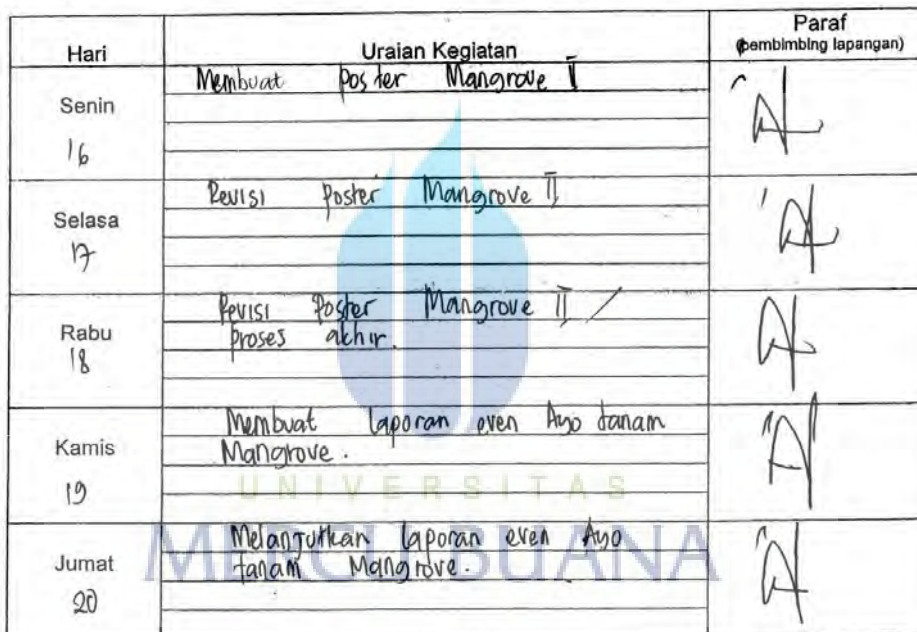 Hari Uraian Kegiatan Paraf
(pembimbing lapangan)
Senin
16
Membuat poster Mangrove II
Selasa
17
Revisi Poster Mangrove II
Rabu
18
Revisi Poster Mangrove II /
proses akhir.
Kamis
19
Membuat laporan even Ayo tanam
Mangrove.
UNIVERSITAS
MERCU BUANA
Jumat
20
Melanjutkan laporan even Ayo
tanam Mangrove.